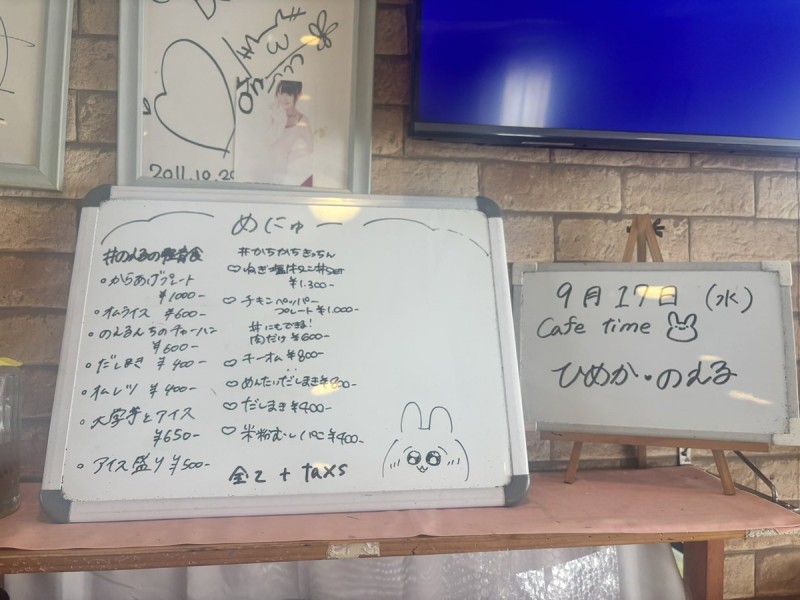 2011.10.20
めにゅー
#のえるの軽食
・からあげプレート
¥1000-
・オムライス ¥600-
・のえるんちのチャーハン
¥600-
・だしまき ¥400-
・オムレツ ¥400-
・大学芋とアイス
¥650-
・アイス盛り ¥500-
#かちかちきっちん
♡ ねぎ塩牛タン丼set
¥1.300-
♡ チキンペッパー
プレート ¥1.000-
丼にもできる!
肉だけ ¥600-
♡ キーオム ¥800-
♡ めんたいだしまき
♡ だしまき ¥400-
♡ 米粉むしパン ¥400-
全て + taxs
9月17日 (水)
Cafe time
ひめか・のえる